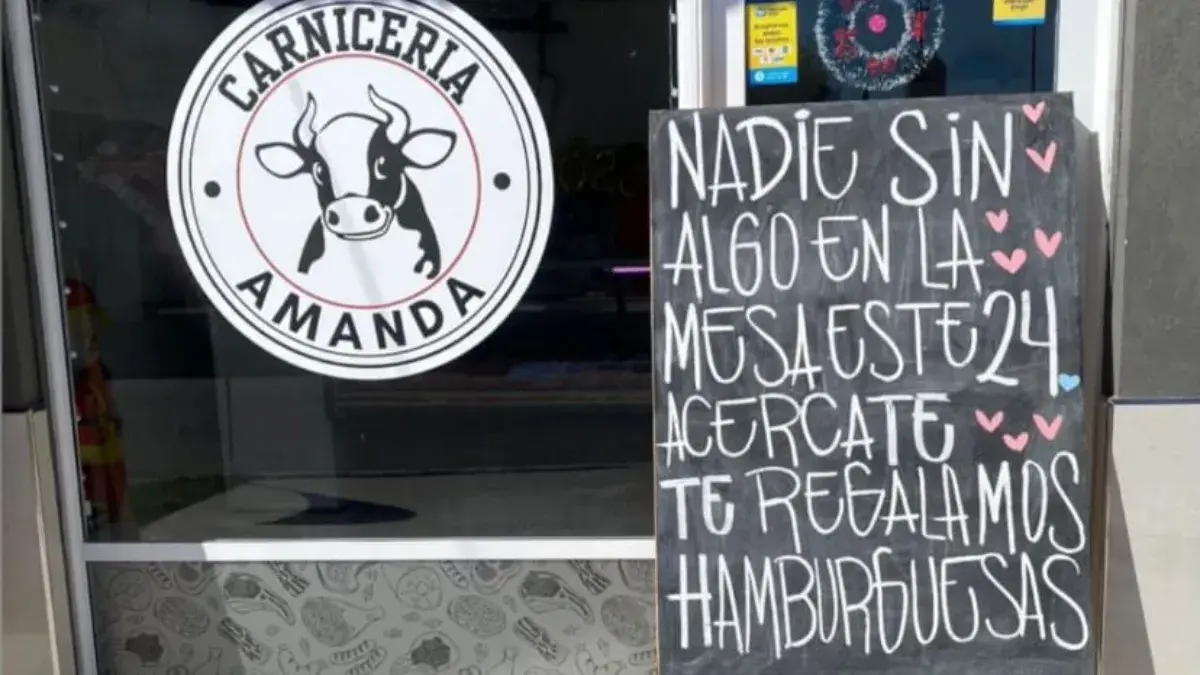 CARNICERIA
AMANDA
NADIE SIN
ALGO EN LA
MESA ESTE 24
ACERCATE
TE REGALAMOS
HAMBURGUESAS